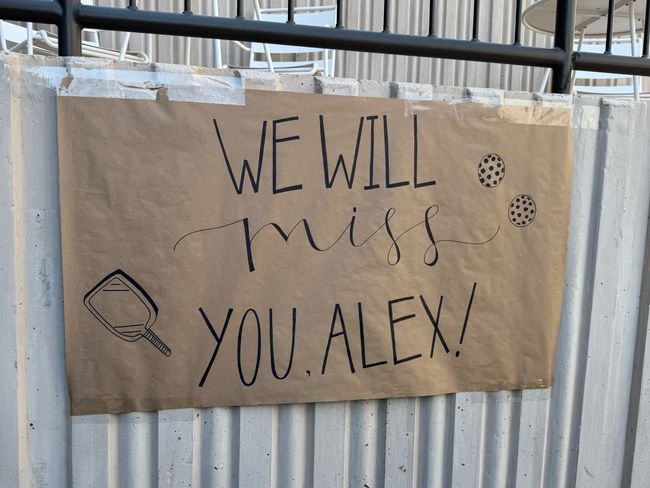 WE WILL
miss
YOU, ALEX!